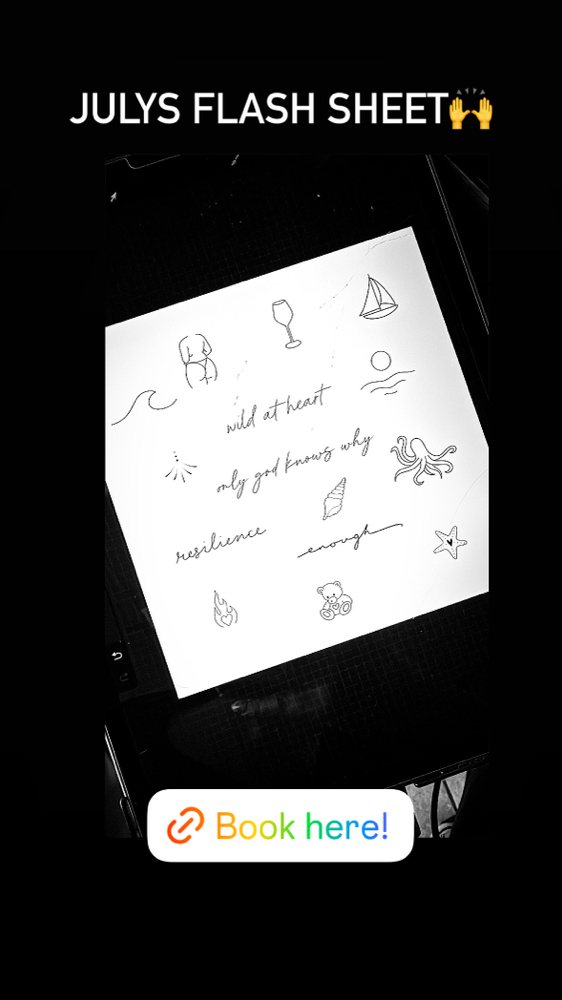 JULYS FLASH SHEET🙌
wild at heart
only god knows why
resilience
enough
Book here!